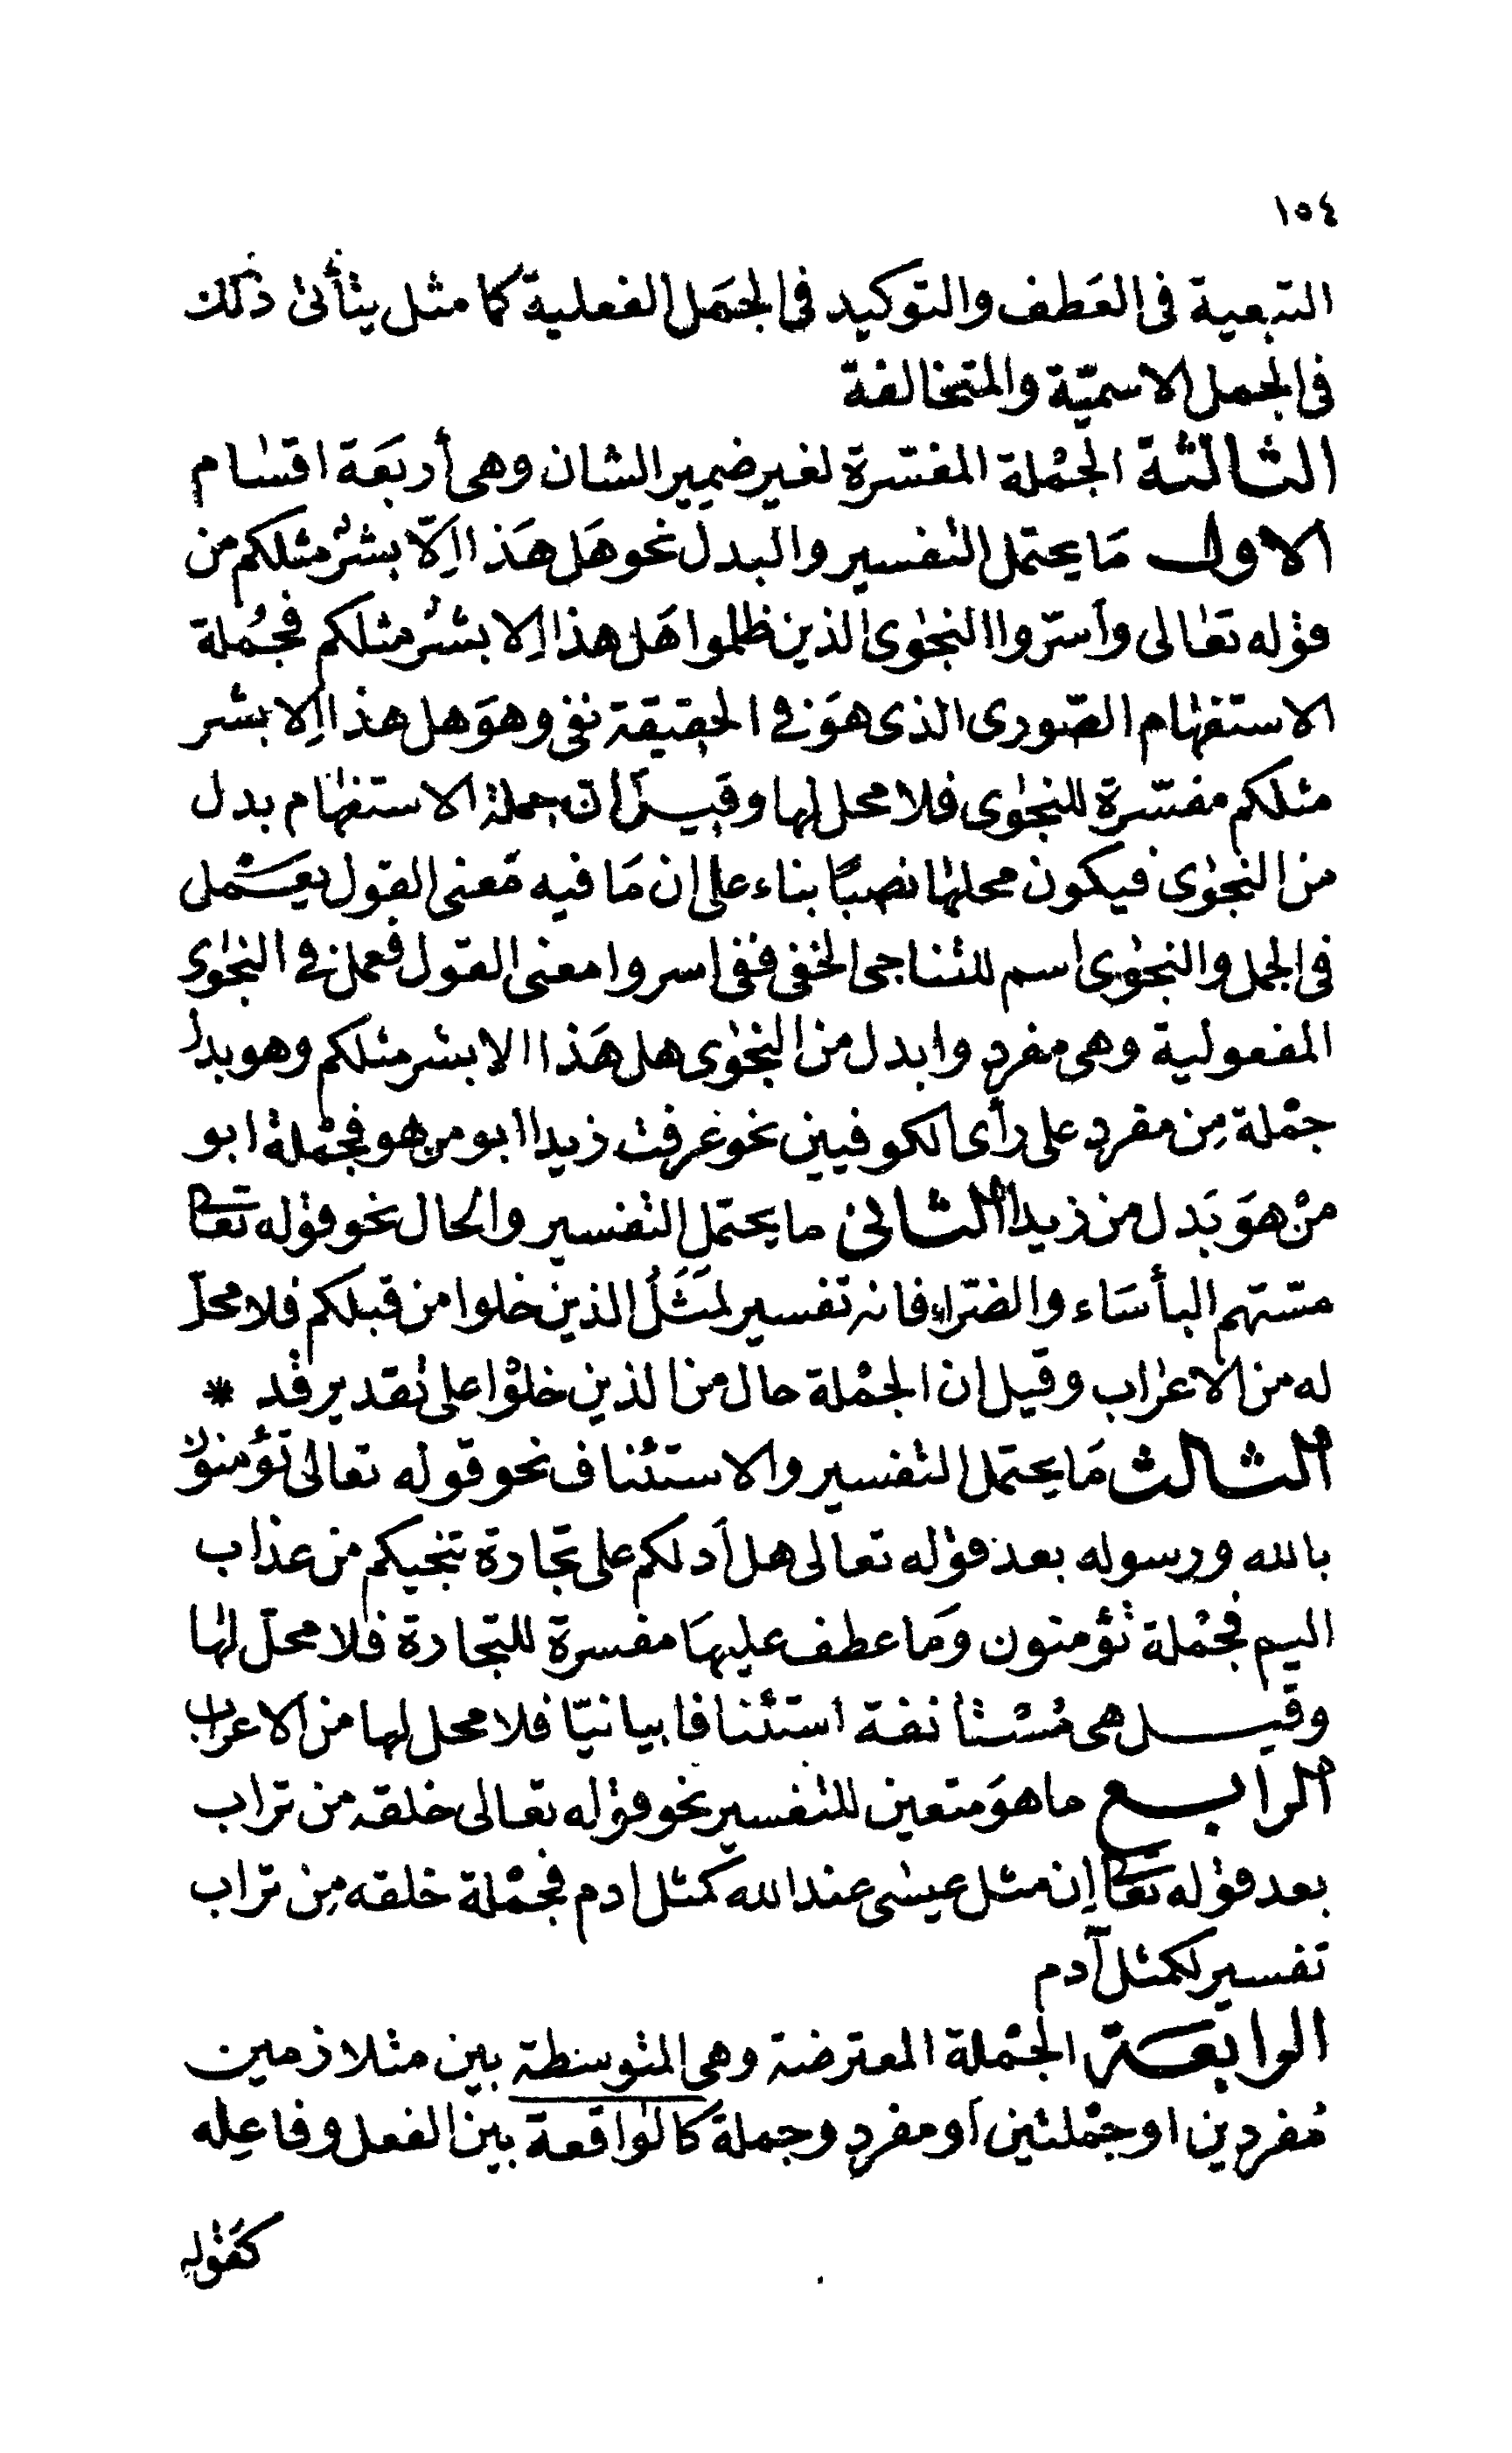 ١٥٤
التبعية فى العَطف والتوكيد فى الجمَل الفعلية كما مثل يتأتى ذلك
فى الجمل الاسميّة والمتخالفة
الثالثة الجمْلة المفسّرة لغير ضمير الشان وهى أربعَة اقسام
الاول مَا يحتمل التفسير والبدل نحو هَل هَذا اِلّا بشرٌ مثلكم من
قوله تعالى وأسرّوا النجوى الذين ظلموا هَل هذا اِلا بشرٌ مثلكم فجُملة
الاستفهام الصّورى الذى هوَ فى الحقيقة نفى وهوَ هل هذا اِلا بشر
مثلكم مفسّرة للنجوى فلا محل لها وقيل ان جملة الاستفهام بدل
من النجوى فيكون محلها نصبًا بناء على ان مَا فيه مَعنى القول يعمل
فى الجمل والنجوى اسم للتناجى الخفى ففى اسروا معنى القول فعمل فى النجوى
المفعولية وهى مفرد وابدل من النجوى هل هَذا الا بشر مثلكم وهو بدل
جمْلة مِن مفرد على رأى الكوفيين نحو عرفت زيدا ابو من هو فجمْلة ابو
مَنْ هوَ بَدل من زيدا الثانى ما يحتمل التفسير والحال نحو قوله تعا
مسّتهم البأسَاء والضرّاء فانه تفسير لمَثَلُ الذين خلوا من قبلكم فلا محلّ
له من الاعراب وقيل ان الجمْلة حال من الذين خلوْا على تقدير قد *
الثالث مَا يحتمل التفسير والاستئناف نحو قوله تعالى تؤمنون
بالله ورسوله بعد قوله تعالى هل أدلكم على تجارة تنجيكم من عذاب
اليم فجمْلة تؤمنون وَما عطف عليهَا مفسرة للتجارة فلا محلّ لها
وقيل هى مُسْتانفة استئنافا بيانيّا فلا محل لها من الاعراب
الرابع ما هوَ متعين للتفسير نحو قوله تعالى خلقه من تراب
بعد قوله تعا اِن مثل عيسى عند الله كمثل ادم فجمْلة خلقه مِن تراب
تفسير لكمثل آدم
الرابعة الجمْلة المعترضة وهى المتوسطة بين متلازمين
مُفردين او جمْلتين أو مفرد وجملة كالواقعة بين الفعل وفاعِله
كقوله